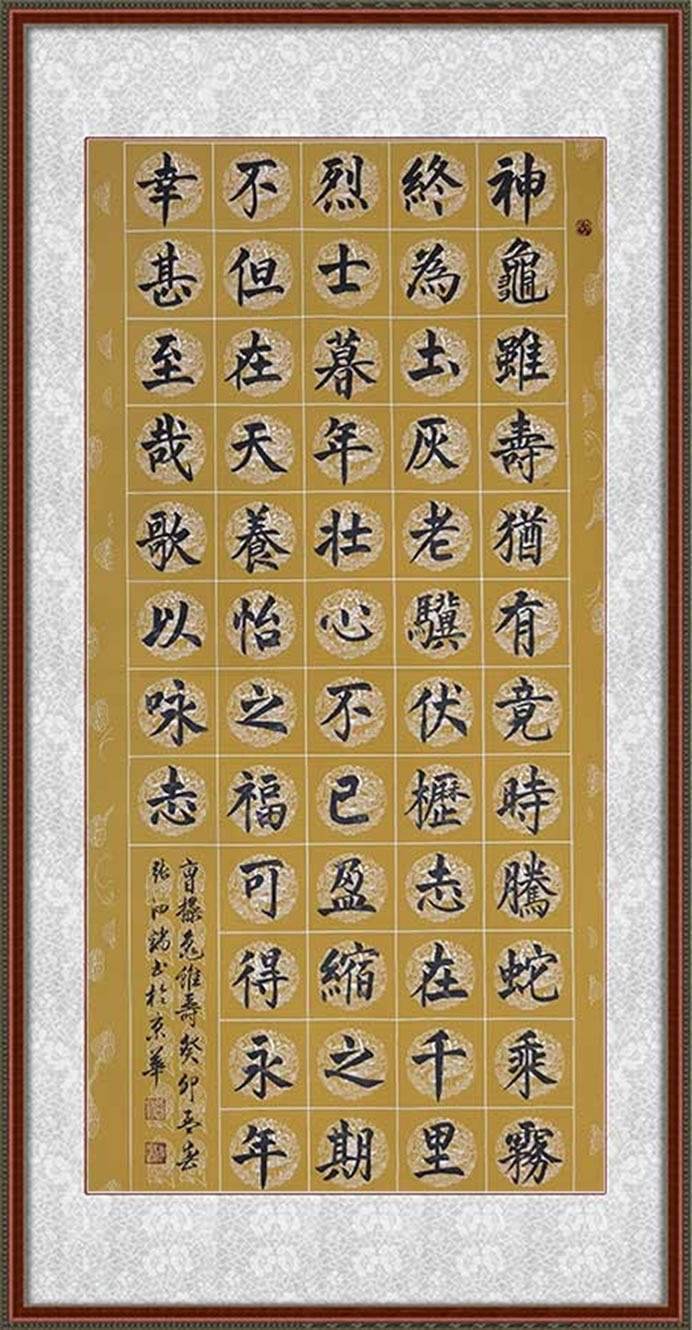 神龜雖壽猶有竟時騰蛇乘霧
終為土灰老驥伏櫪志在千里
烈士暮年壯心不已盈縮之期
不但在天養怡之福可得永年
幸甚至哉歌以咏志
曹操龜雖壽癸卯孟春
張泗書於京華